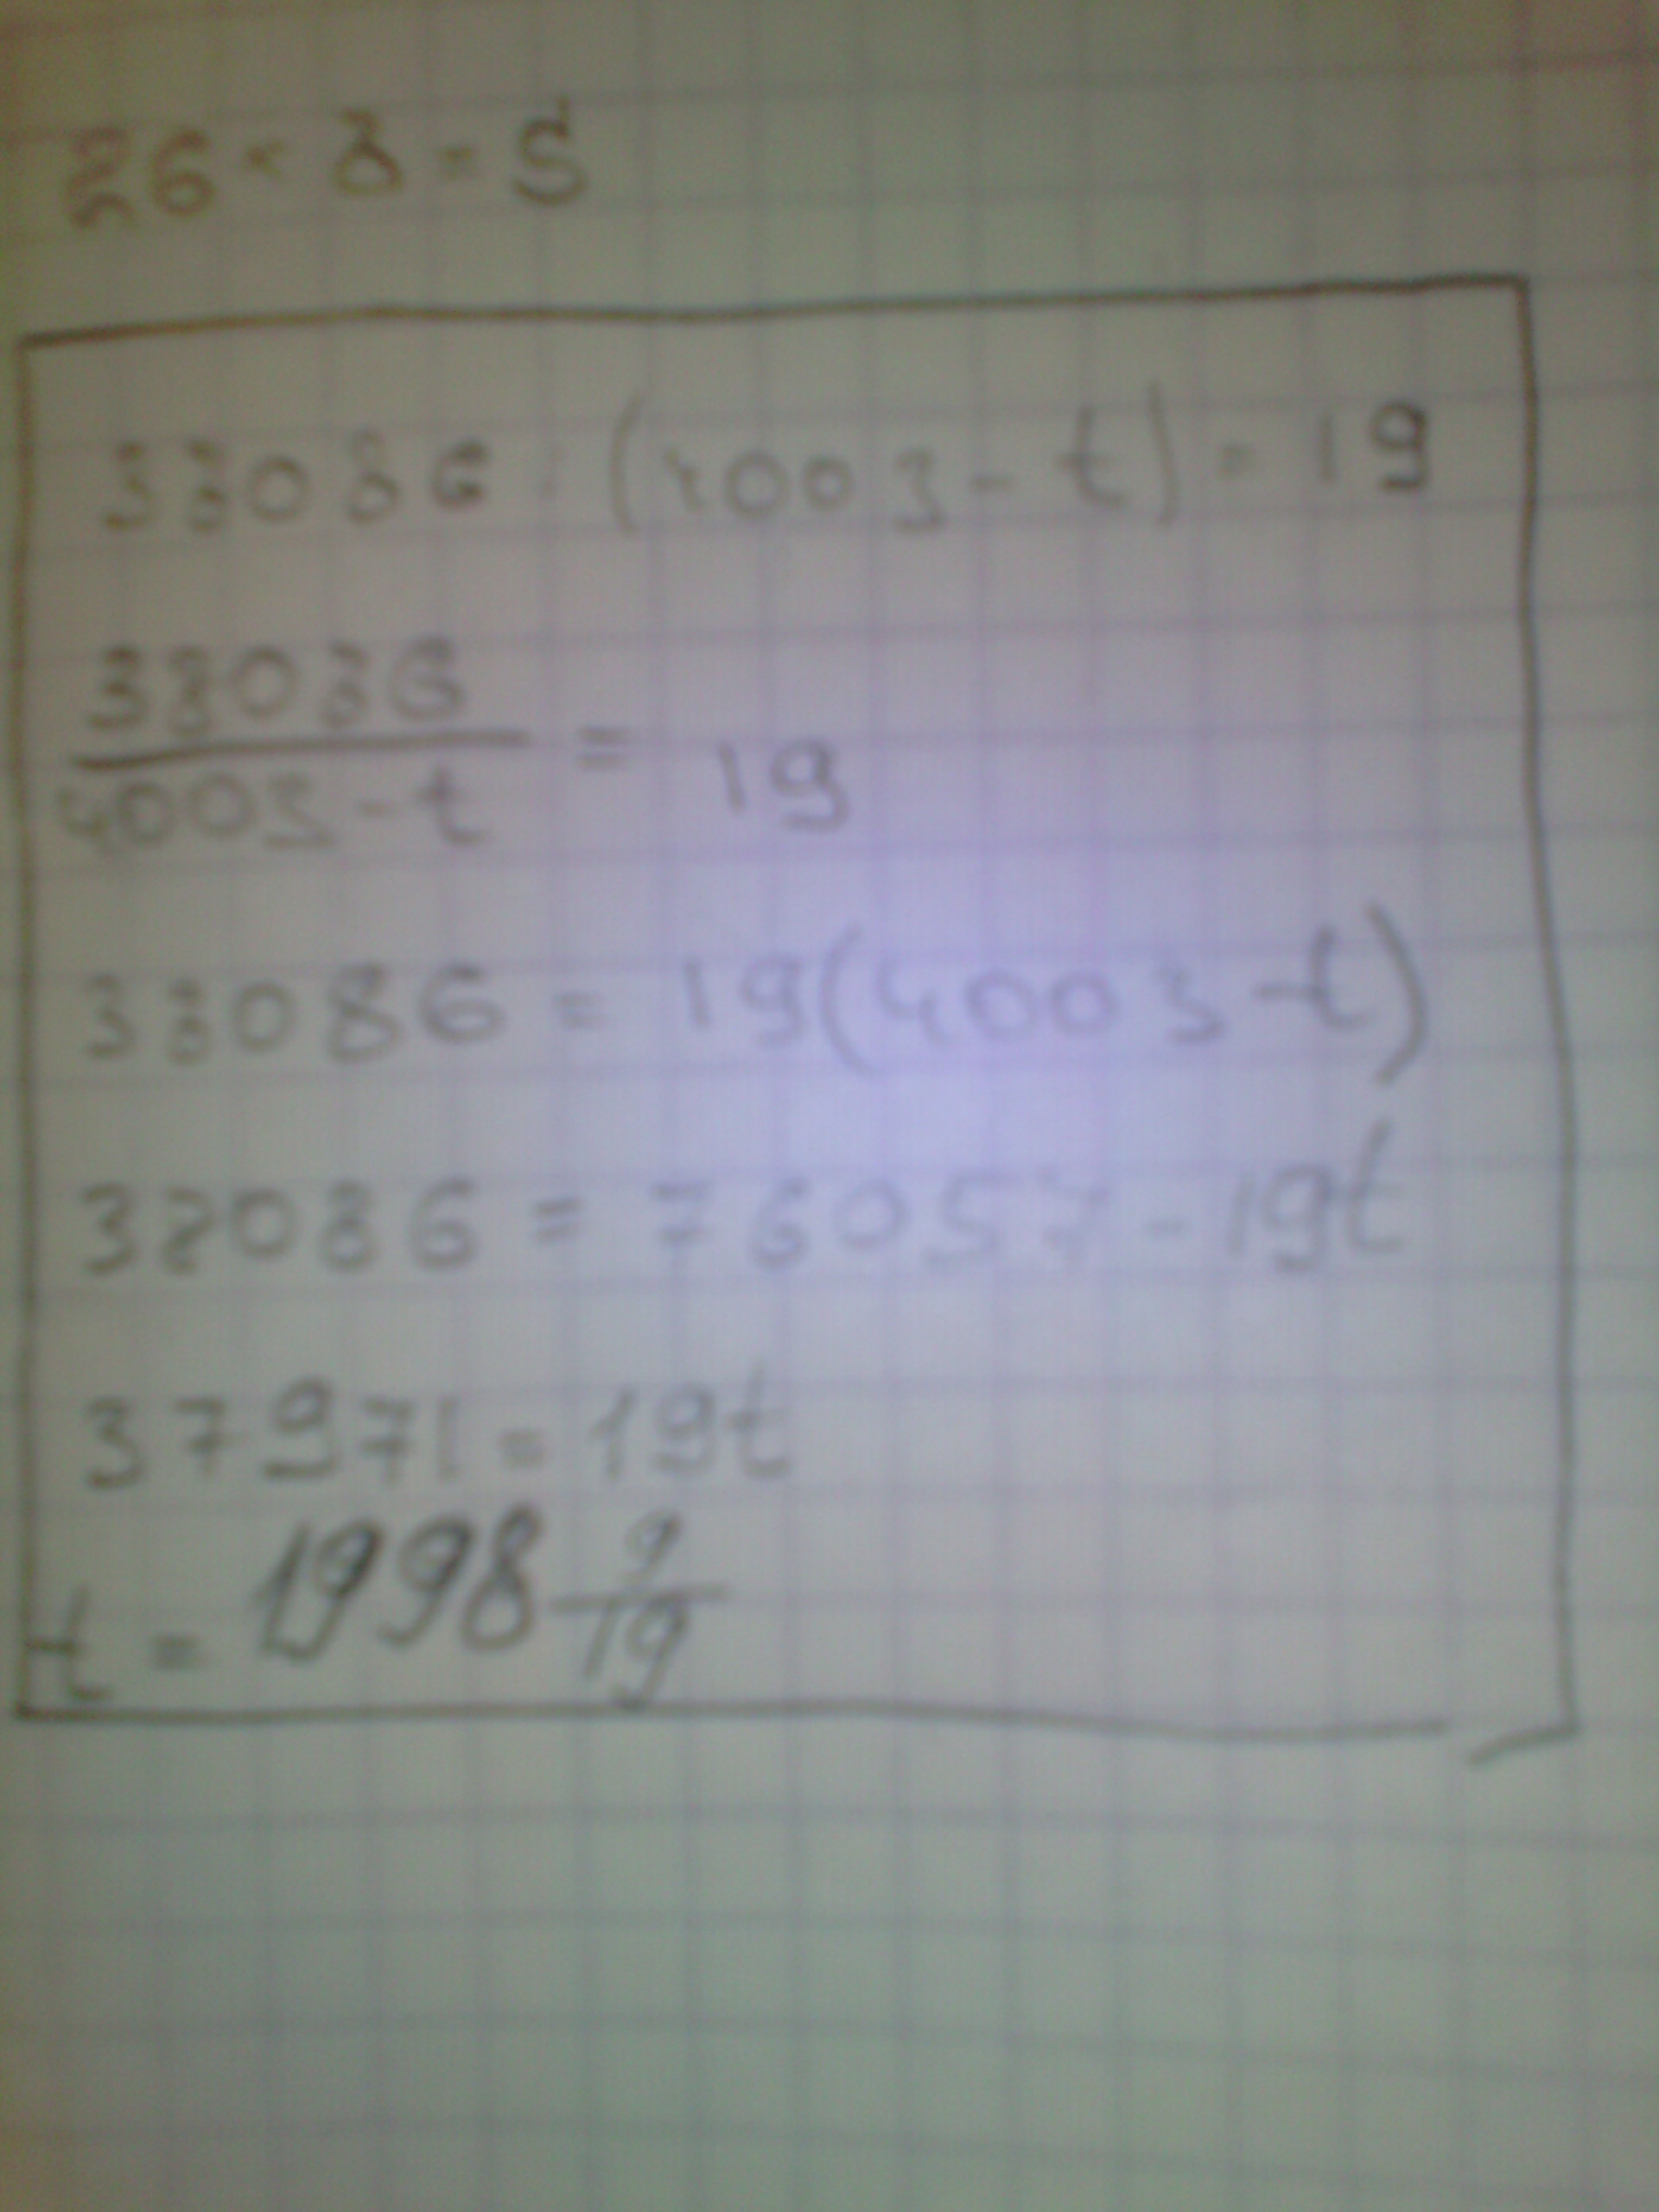 26 × 8 = S
38086 : (4003 - t) = 19
38086
4003 - t
= 19
38086 = 19(4003 - t)
38086 = 76057 - 19t
37971 = 19t
t = 1998 9/19